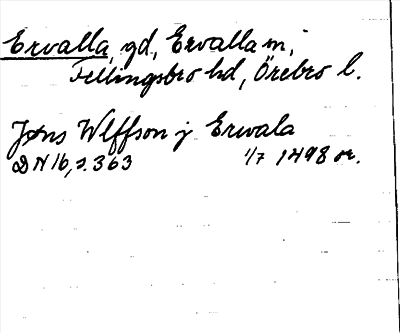 Ervalla, gd, Ervalla sn,
Fellingsbro hd, Örebro l.
Jøns Wlffson j Erwala
DN 16, s. 363 1/7 1498 or.